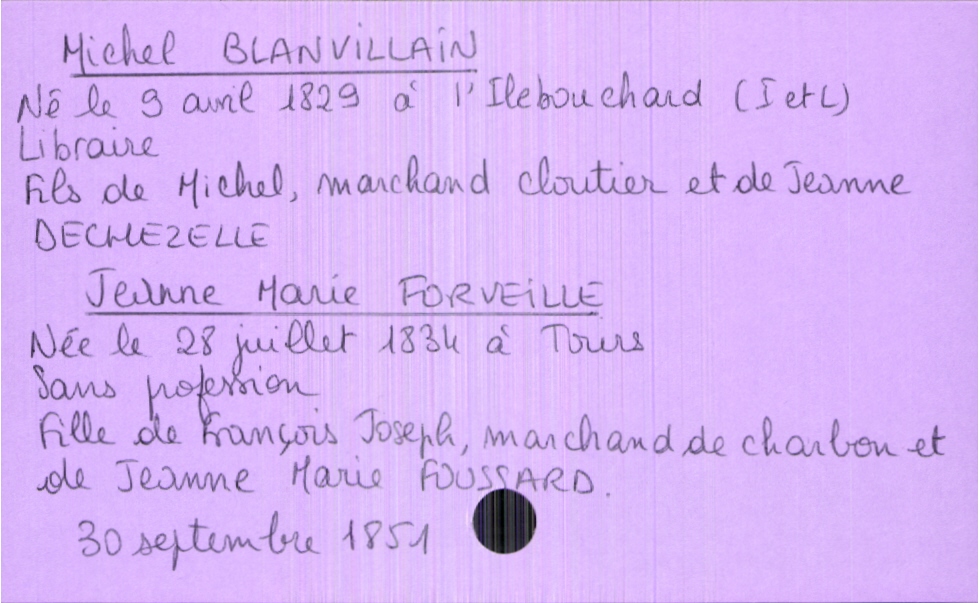 Michel BLANVILLAIN
Né le 9 avril 1829 à l'Ilebouchard (I et L)
Libraire
Fils de Michel, marchand cloutier et de Jeanne
DECHEZELLE
Jeanne Marie FORVEILLE
Née le 28 juillet 1834 à Tours
Sans profession
Fille de François Joseph, marchand de charbon et
de Jeanne Marie FOUSSARD.
30 septembre 1851